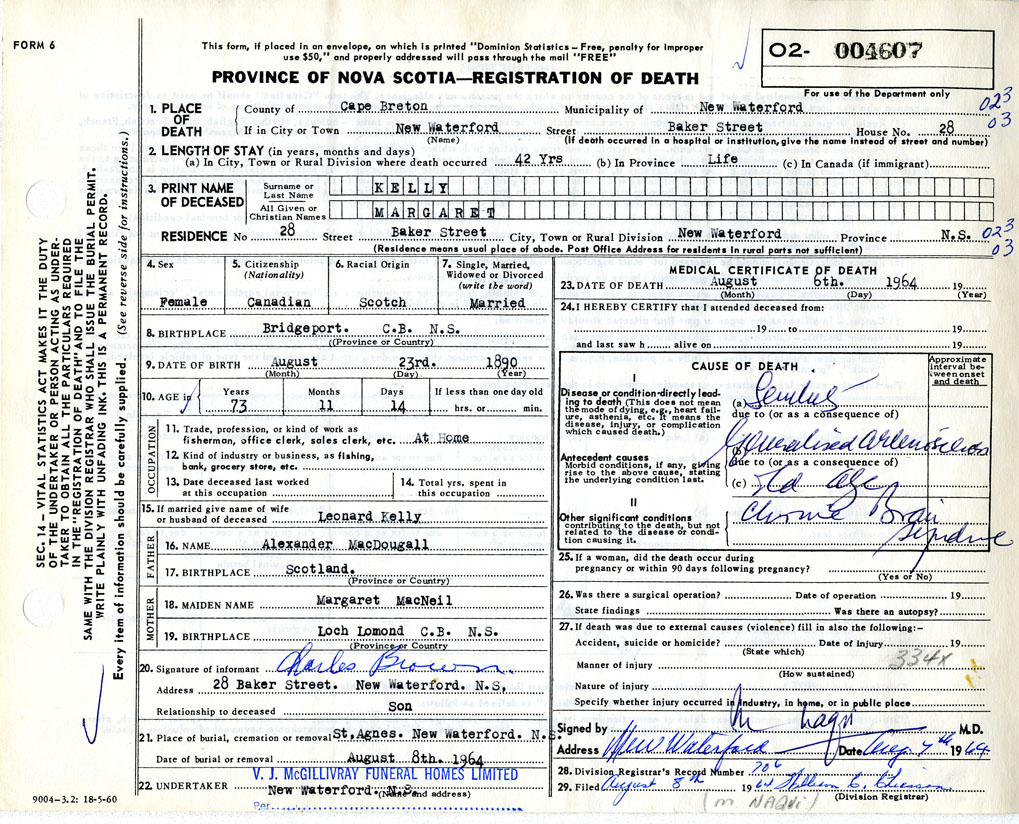 FORM 6
This form, if placed in an envelope, on which is printed "Dominion Statistics – Free, penalty for improper
use $50," and properly addressed will pass through the mail "FREE"
PROVINCE OF NOVA SCOTIA—REGISTRATION OF DEATH
O2- 004607
For use of the Department only
SEC. 14 – VITAL STATISTICS ACT MAKES IT THE DUTY
OF THE UNDERTAKER OR PERSON ACTING AS UNDER-
TAKER TO OBTAIN ALL THE PARTICULARS REQUIRED
IN THE "REGISTRATION OF DEATH" AND TO FILE THE
SAME WITH THE DIVISION REGISTRAR WHO SHALL ISSUE THE BURIAL PERMIT.
WRITE PLAINLY WITH UNFADING INK. THIS IS A PERMANENT RECORD.
Every item of information should be carefully supplied. (See reverse side for instructions.)
1. PLACE OF DEATH { County of Cape Breton Municipality of New Waterford 023
If in City or Town New Waterford Street Baker Street House No. 28 03
(Name) (If death occurred in a hospital or institution, give the name instead of street and number)
2. LENGTH OF STAY (in years, months and days)
(a) In City, Town or Rural Division where death occurred 42 Yrs (b) In Province Life (c) In Canada (if immigrant)
3. PRINT NAME OF DECEASED Surname or Last Name KELLY
All Given or Christian Names MARGARET
RESIDENCE No 28 Street Baker Street City, Town or Rural Division New Waterford Province N.S. 023
(Residence means usual place of abode. Post Office Address for residents in rural parts not sufficient) 03
4. Sex Female
5. Citizenship (Nationality) Canadian
6. Racial Origin Scotch
7. Single, Married, Widowed or Divorced (write the word) Married
8. BIRTHPLACE Bridgeport. C.B. N.S.
(Province or Country)
9. DATE OF BIRTH August 23rd. 1890
(Month) (Day) (Year)
10. AGE in Years 73 Months 11 Days 14 If less than one day old hrs. or min.
OCCUPATION
11. Trade, profession, or kind of work as
fisherman, office clerk, sales clerk, etc. At Home
12. Kind of industry or business, as fishing,
bank, grocery store, etc
13. Date deceased last worked
at this occupation
14. Total yrs. spent in
this occupation
15. If married give name of wife
or husband of deceased Leonard Kelly
FATHER
16. NAME Alexander MacDougall
17. BIRTHPLACE Scotland.
(Province or Country)
MOTHER
18. MAIDEN NAME Margaret MacNeil
19. BIRTHPLACE Loch Lomond C.B. N.S.
(Province or Country
20. Signature of informant Charles Brown
Address 28 Baker Street. New Waterford. N.S,
Relationship to deceased Son
21. Place of burial, cremation or removal St, Agnes. New Waterford. N.S.
Date of burial or removal August 8th. 1964
V. J. McGILLIVRAY FUNERAL HOMES LIMITED
22. UNDERTAKER New Waterford. N.S.
(Name and address)
Per
9004-3.2: 18-5-60
MEDICAL CERTIFICATE OF DEATH
23. DATE OF DEATH August 6th. 1964 19
(Month) (Day) (Year)
24. I HEREBY CERTIFY that I attended deceased from:
19 to 19
and last saw h alive on 19
CAUSE OF DEATH
Approximate interval between onset and death
I
Disease or condition directly leading to death (This does not mean the mode of dying, e.g., heart failure, asthenia, etc. It means the disease, injury, or complication which caused death.)
(a)
due to (or as a consequence of)
Antecedent causes
Morbid conditions, if any, giving rise to the above cause, stating the underlying condition last.
(b) Generalised Arteriosclerosis
due to (or as a consequence of)
(c) Old Age
II
Other significant conditions contributing to the death, but not related to the disease or condition causing it.
Chronic Brain
Syndrome
25. If a woman, did the death occur during
pregnancy or within 90 days following pregnancy?
(Yes or No)
26. Was there a surgical operation? Date of operation 19
State findings Was there an autopsy?
27. If death was due to external causes (violence) fill in also the following:-
Accident, suicide or homicide? Date of injury 19
(State which) 334x
Manner of injury
(How sustained)
Nature of injury
Specify whether injury occurred in industry, in home, or in public place
Signed by M Naqvi M.D.
Address New Waterford Date Aug 7th 1964
28. Division Registrar's Record Number 706
29. Filed August 8th 1964 William C.
(Division Registrar)
(M NAQVI)